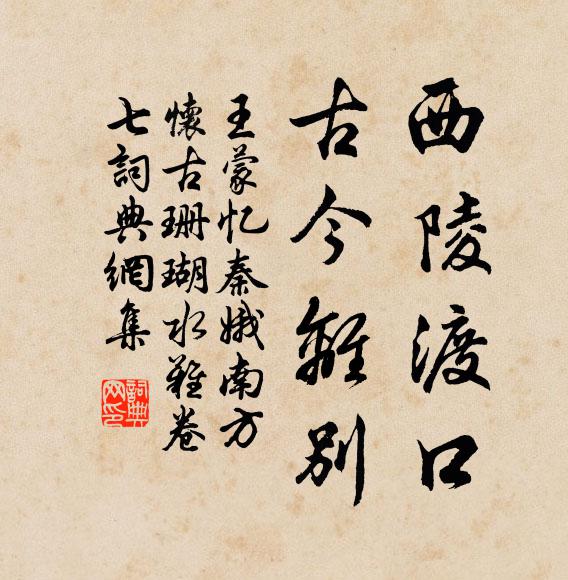 西陵渡口
古今離別
王蒙忆秦娥南方
懷古珊瑚水難卷
七詞典網集
詞典
网印